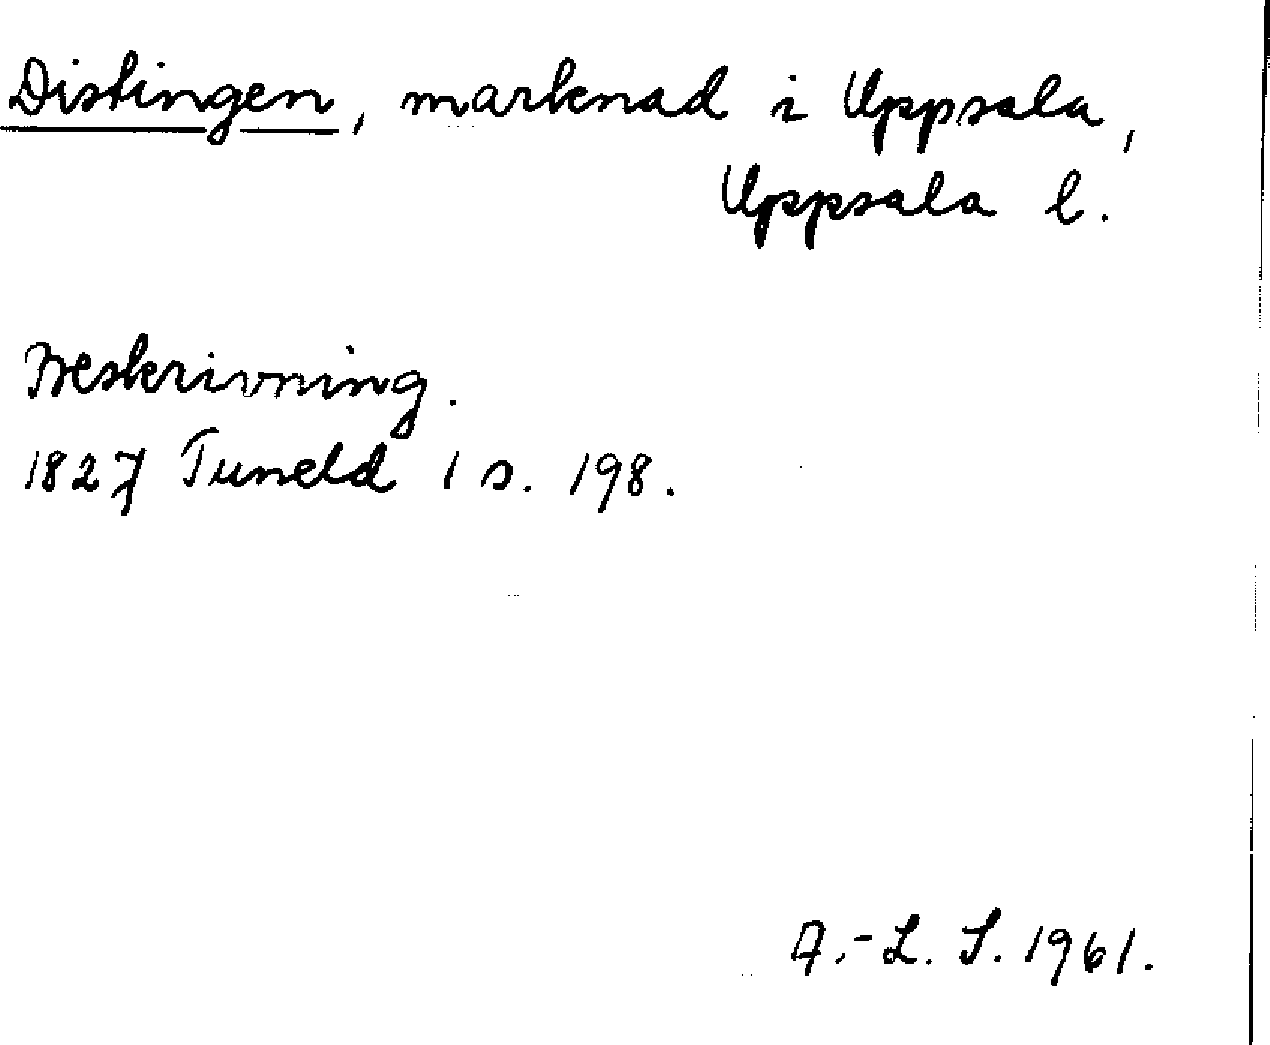 Distingen, marknad i Uppsala,
Uppsala l.
Beskrivning.
1827 Tuneld 1 s. 198.
A.-L. S. 1961.